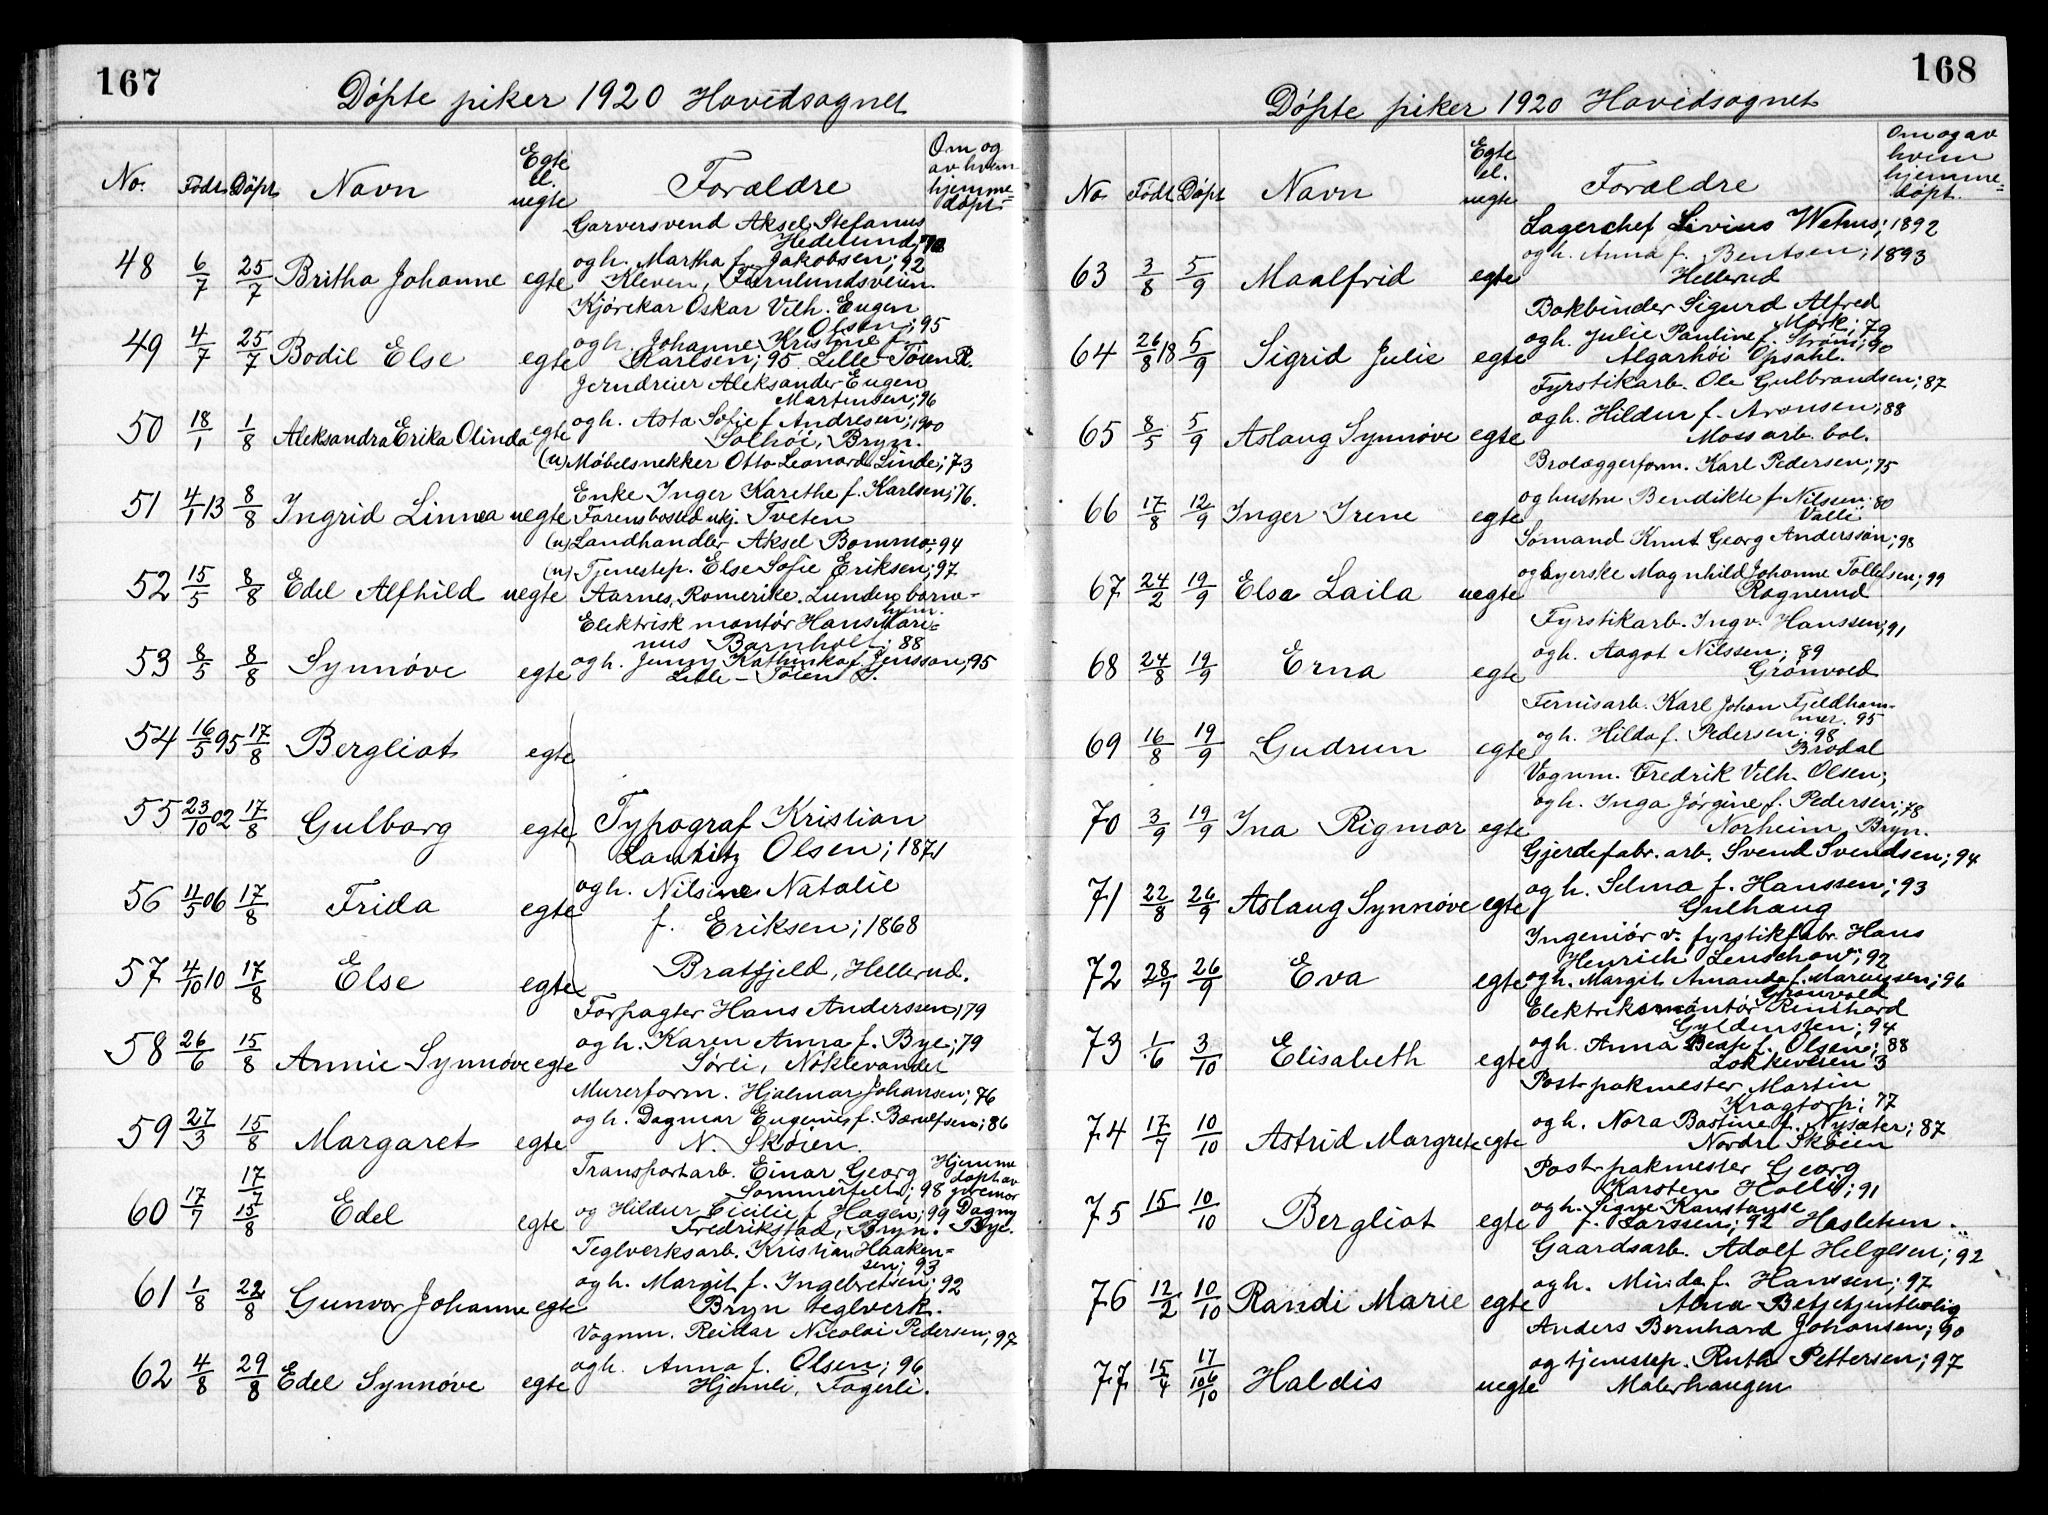 167
Döpte piker 1920 Hovedsognet
No. Födt Döpt Navn Egte el. uegte Forældre Om og av hvem hjemme=döpt.
Garversvend Aksel Stefanus
Hedelund;
48 6/7 25/7 Britha Johanne egte og h. Martha f. Jakobsen; 92
Kleven, Furulundsveien.
Kjörekar Oskar Vilh. Eugen
Olsen; 95
49 4/7 25/7 Bodil Else egte og h. Johanne Kristine f.
Karlsen; 95. Lille-Töien R.
Jerndreier Aleksander Eugen
Martensen; 96
50 18/1 1/8 Aleksandra Erika Olinda egte og h. Asta Sofie f. Andresen; 1900
Solhöi, Bryn.
(u) Möbelsnekker Otto Leonard Linde; 73
51 4/1 13 8/8 Ingrid Linnea uegte Enke Inger Karethe f. Karlsen; 76.
Farens bosted ukj. Tveten
(u) Landhandler Aksel Bommo; 94
52 15/5 8/8 Edel Alfhild uegte (u) Tjenestep. Else Sofie Eriksen; 97
Aarnes, Romerike. Lunden barne-
hjem.
Elektrisk montör Hans Mari=
nus Barnholt; 88
53 8/5 8/8 Synnöve egte og h. Jenny Kathinka f. Jensson; 95
Lille-Töien L.
54 16/5 95 17/8 Bergliot egte
55 23/10 02 17/8 Gulborg egte Typograf Kristian
Lauritz Olsen; 1871
56 4/5 06 17/8 Frida egte og h. Nilsine Natalie
f. Eriksen; 1868
57 4/10 10 17/8 Else egte Bratfjeld, Hellerud.
Forpagter Hans Anderssen; 79
58 26/6 15/8 Annie Synnöve egte og h. Karen Anna f. Bye; 79
Sörli, Nöklevander
Murerform. Hjalmar Johansen; 76
59 27/3 15/8 Margaret egte og h. Dagmar Eugenie f. Bærulfsen; 86
N. Sköien.
Transportarb. Einar Georg
Sommerfelt; 98
60 17/7 17/7 15/8 Edel egte og Hildur Cicilie f. Hagen; 99
Fredrikstad, Bryn.
Hjemme
döpt av
jordmor
Dagny
Bye.
Teglverksarb. Kristian Haaken=
sen; 93
61 1/8 22/8 Gunvor Johanne egte og h. Margit f. Ingebretsen; 92
Bryn teglverk.
Vognm. Reidar Nicolai Pedersen; 97
62 4/8 29/8 Edel Synnöve egte og h. Anna f. Olsen; 96
Hjemli, Fagerli.
168
Döpte piker 1920 Hovedsognet
No Födt Döpt Navn Egte el. uegte Forældre Om og av hvem hjemme=döpt.
Lagerchef Livius Wehus; 1892
63 3/8 5/9 Maalfrid egte og h. Anna f. Bentsen; 1893
Hellerud
Bokbinder Sigurd Alfred
Mörk; 79
64 26/8 18 5/9 Sigrid Julie egte og h. Julie Pauline f. Ström; 90
Algarhöi Opsahl.
Fyrstikarb. Ole Gulbrandsen; 87
65 8/5 5/9 Aslaug Synnöve egte og h. Hildur f. Aronsen; 88
Moss arb. bol.
Brolæggerform. Karl Pedersen; 75
66 17/8 12/9 Inger Irene egte og hustru Bendikte f. Nilssen; 80
Valle
Sömand Knut Georg Andersson; 98
67 24/2 19/9 Else Laila uegte og syerske Magnhild Johanne Tollefsen; 99
Rognerud
Fyrstikarb. Ingv. Hanssen; 91
68 24/8 19/9 Erna egte og h. Aagot Nilssen; 89
Grönvold
Fernisarb. Karl Johan Fjeldham-
mer. 95
69 16/8 19/9 Gudrun egte og h. Hilda f. Pedersen; 98
Brodal
Vognm. Fredrik Vilh. Olsen;
70 3/9 19/9 Ina Rigmor egte og h. Inga Jörgine f. Pedersen; 78
Norheim, Bryn.
Gjerdefabr. arb. Svend Svendsen; 94
71 22/8 26/9 Aslaug Synnöve egte og h. Selma f. Hanssen; 93
Gulhaug
Ingeniör v. fyrstikfabr. Hans
Henrich Lenschow; 92
72 28/7 26/9 Eva egte og h. Margit Amanda f. Marcussen; 96
Grönvold
Elektriksmontör Reinhard
Gyldensten; 94
73 1/6 3/10 Elisabeth egte og h. Anna Beate f. Olsen; 88
Lokkeveien 3
Postpakmester Martin
Kragtorp; 77
74 17/7 10/10 Astrid Margrete egte og h. Nora Bastine f. Nysæter; 87
Nordre Sköien
Postpakmester Georg
Karsten Holli; 91
75 15 10/10 Bergliot egte og h. Signe Konstanse
f. Larssen; 92 Hasletun.
Gaardsarb. Adolf Helgesen; 92
76 12/2 10/10 Randi Marie egte og h. Minda f. Hanssen; 97
Alna
Anders Bernhard Johansen; 90
77 15/4 17/10 Haldis uegte og tjenestep. Ruth Pettersen; 97
Malerhaugen